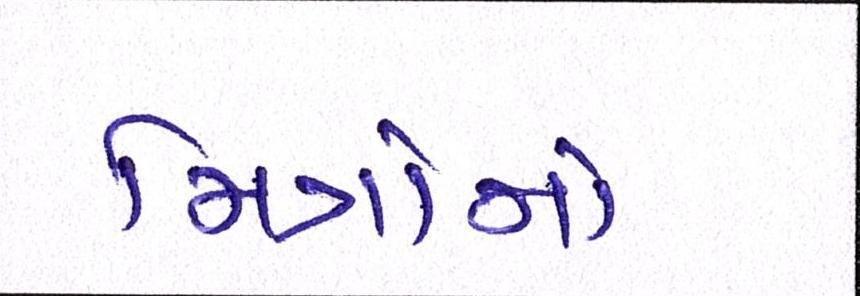 મિત્રોનો